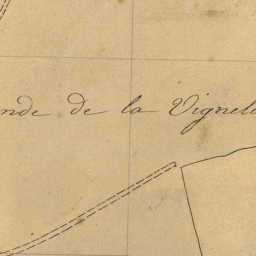 nde de la Vignel